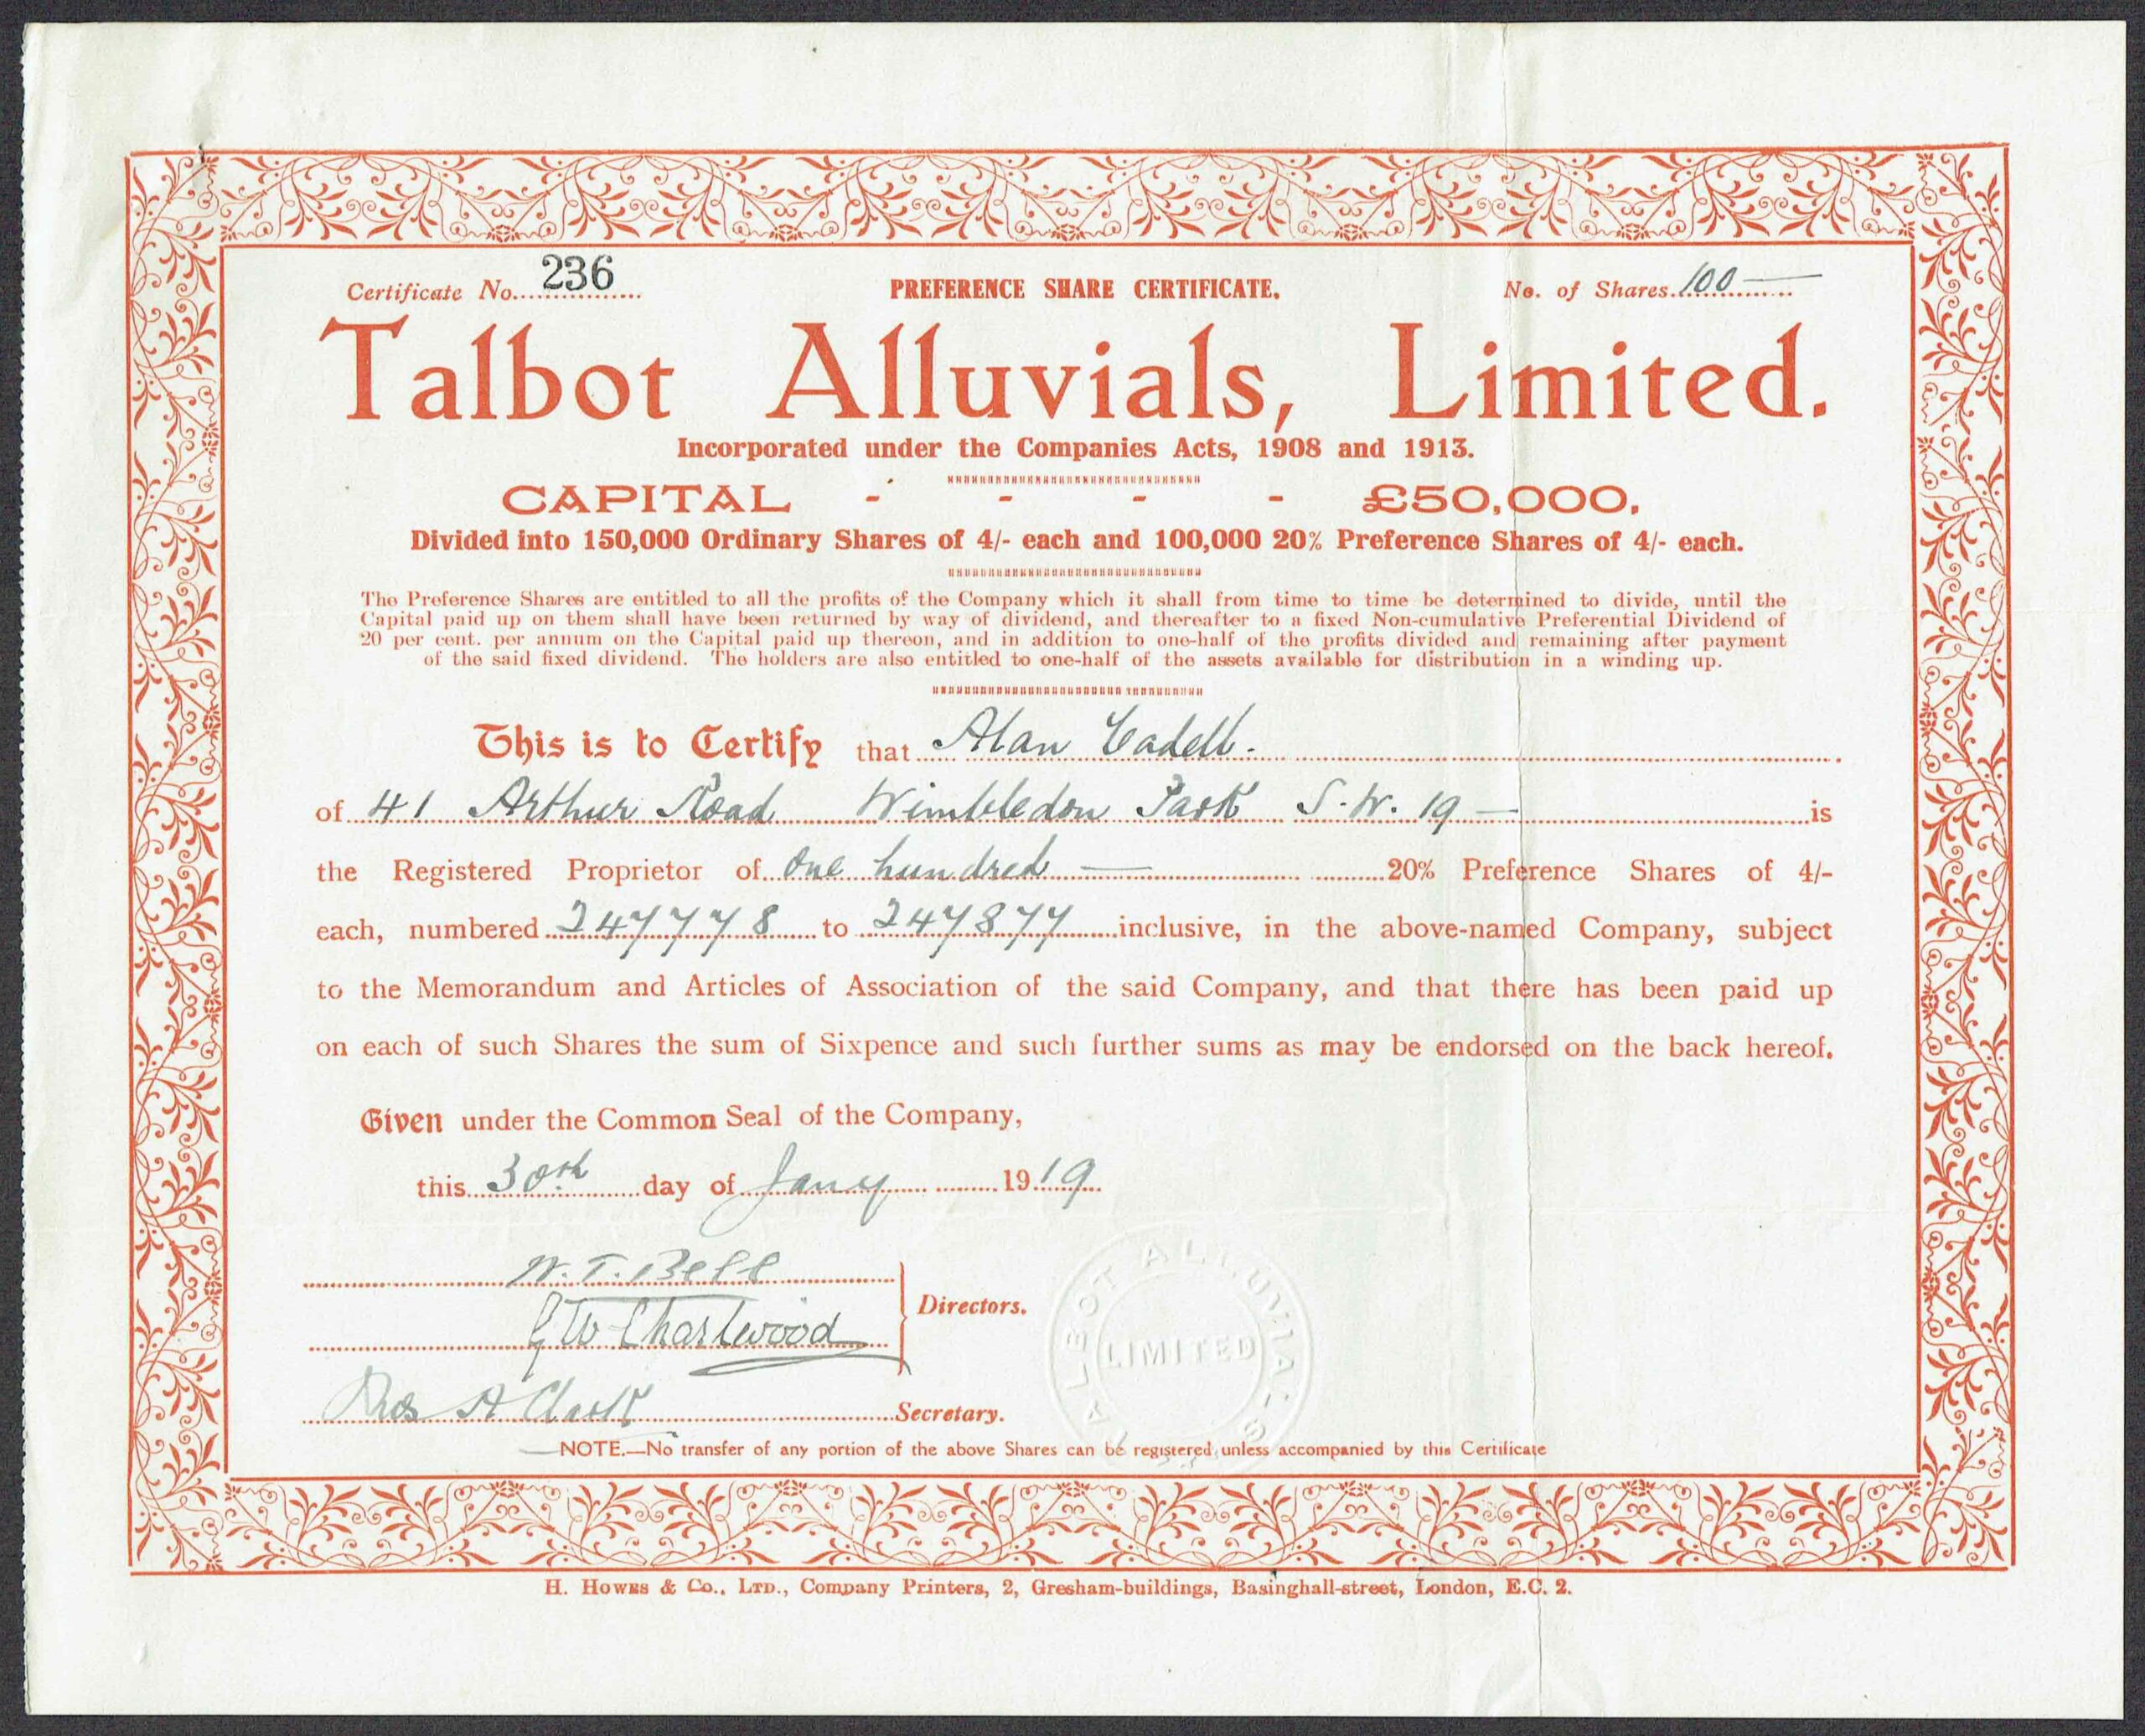 Certificate No. 236 PREFERENCE SHARE CERTIFICATE. No. of Shares 100 —
Talbot Alluvials, Limited.
Incorporated under the Companies Acts, 1908 and 1913.
CAPITAL - - - - £50,000,
Divided into 150,000 Ordinary Shares of 4/- each and 100,000 20% Preference Shares of 4/- each.
The Preference Shares are entitled to all the profits of the Company which it shall from time to time be determined to divide, until the
Capital paid up on them shall have been returned by way of dividend, and thereafter to a fixed Non-cumulative Preferential Dividend of
20 per cent. per annum on the Capital paid up thereon, and in addition to one-half of the profits divided and remaining after payment
of the said fixed dividend. The holders are also entitled to one-half of the assets available for distribution in a winding up.
This is to Certify that Alan Cadell.
of 41 Arthur Road Wimbledon Park S.W. 19 — is
the Registered Proprietor of One hundred — 20% Preference Shares of 4/-
each, numbered 247778 to 247877 inclusive, in the above-named Company, subject
to the Memorandum and Articles of Association of the said Company, and that there has been paid up
on each of such Shares the sum of Sixpence and such further sums as may be endorsed on the back hereof.
Given under the Common Seal of the Company,
this 30th day of Jany 1919
W. T. Bell
Directors.
G W Charlwood
TALBOT ALLUVIALS
LIMITED
Thos A Clark Secretary.
NOTE.—No transfer of any portion of the above Shares can be registered unless accompanied by this Certificate
H. HOWES & Co., LTD., Company Printers, 2, Gresham-buildings, Basinghall-street, London, E.C. 2.